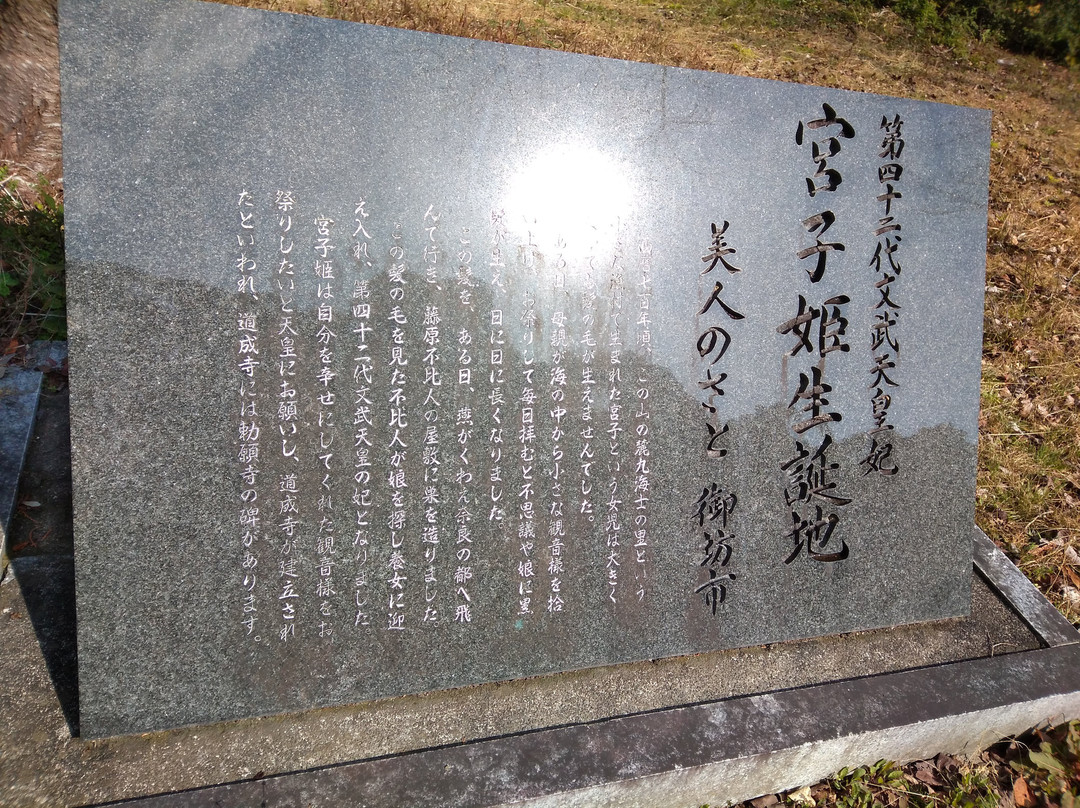 第四十二代文武天皇妃
宮子姫生誕地
美人のさと 御坊市
百年頃、この山の麓九海士の里という
で生まれた宮子という女児は大きく
ても髪の毛が生えませんでした。
ある日、母親が海の中から小さな観音様を拾
い上げ、お祭りして毎日拝むと不思議や娘に黒
髪が生え、日に日に長くなりました。
この髪を、ある日、燕がくわえ奈良の都へ飛
んで行き、藤原不比人の屋敷に巣を造りました
この髪の毛を見た不比人が娘を探し養女に迎
え入れ、第四十二代文武天皇の妃となりました
宮子姫は自分を幸せにしてくれた観音様をお
祭りしたいと天皇にお願いし、道成寺が建立され
たといわれ、道成寺には勅願寺の碑があります。